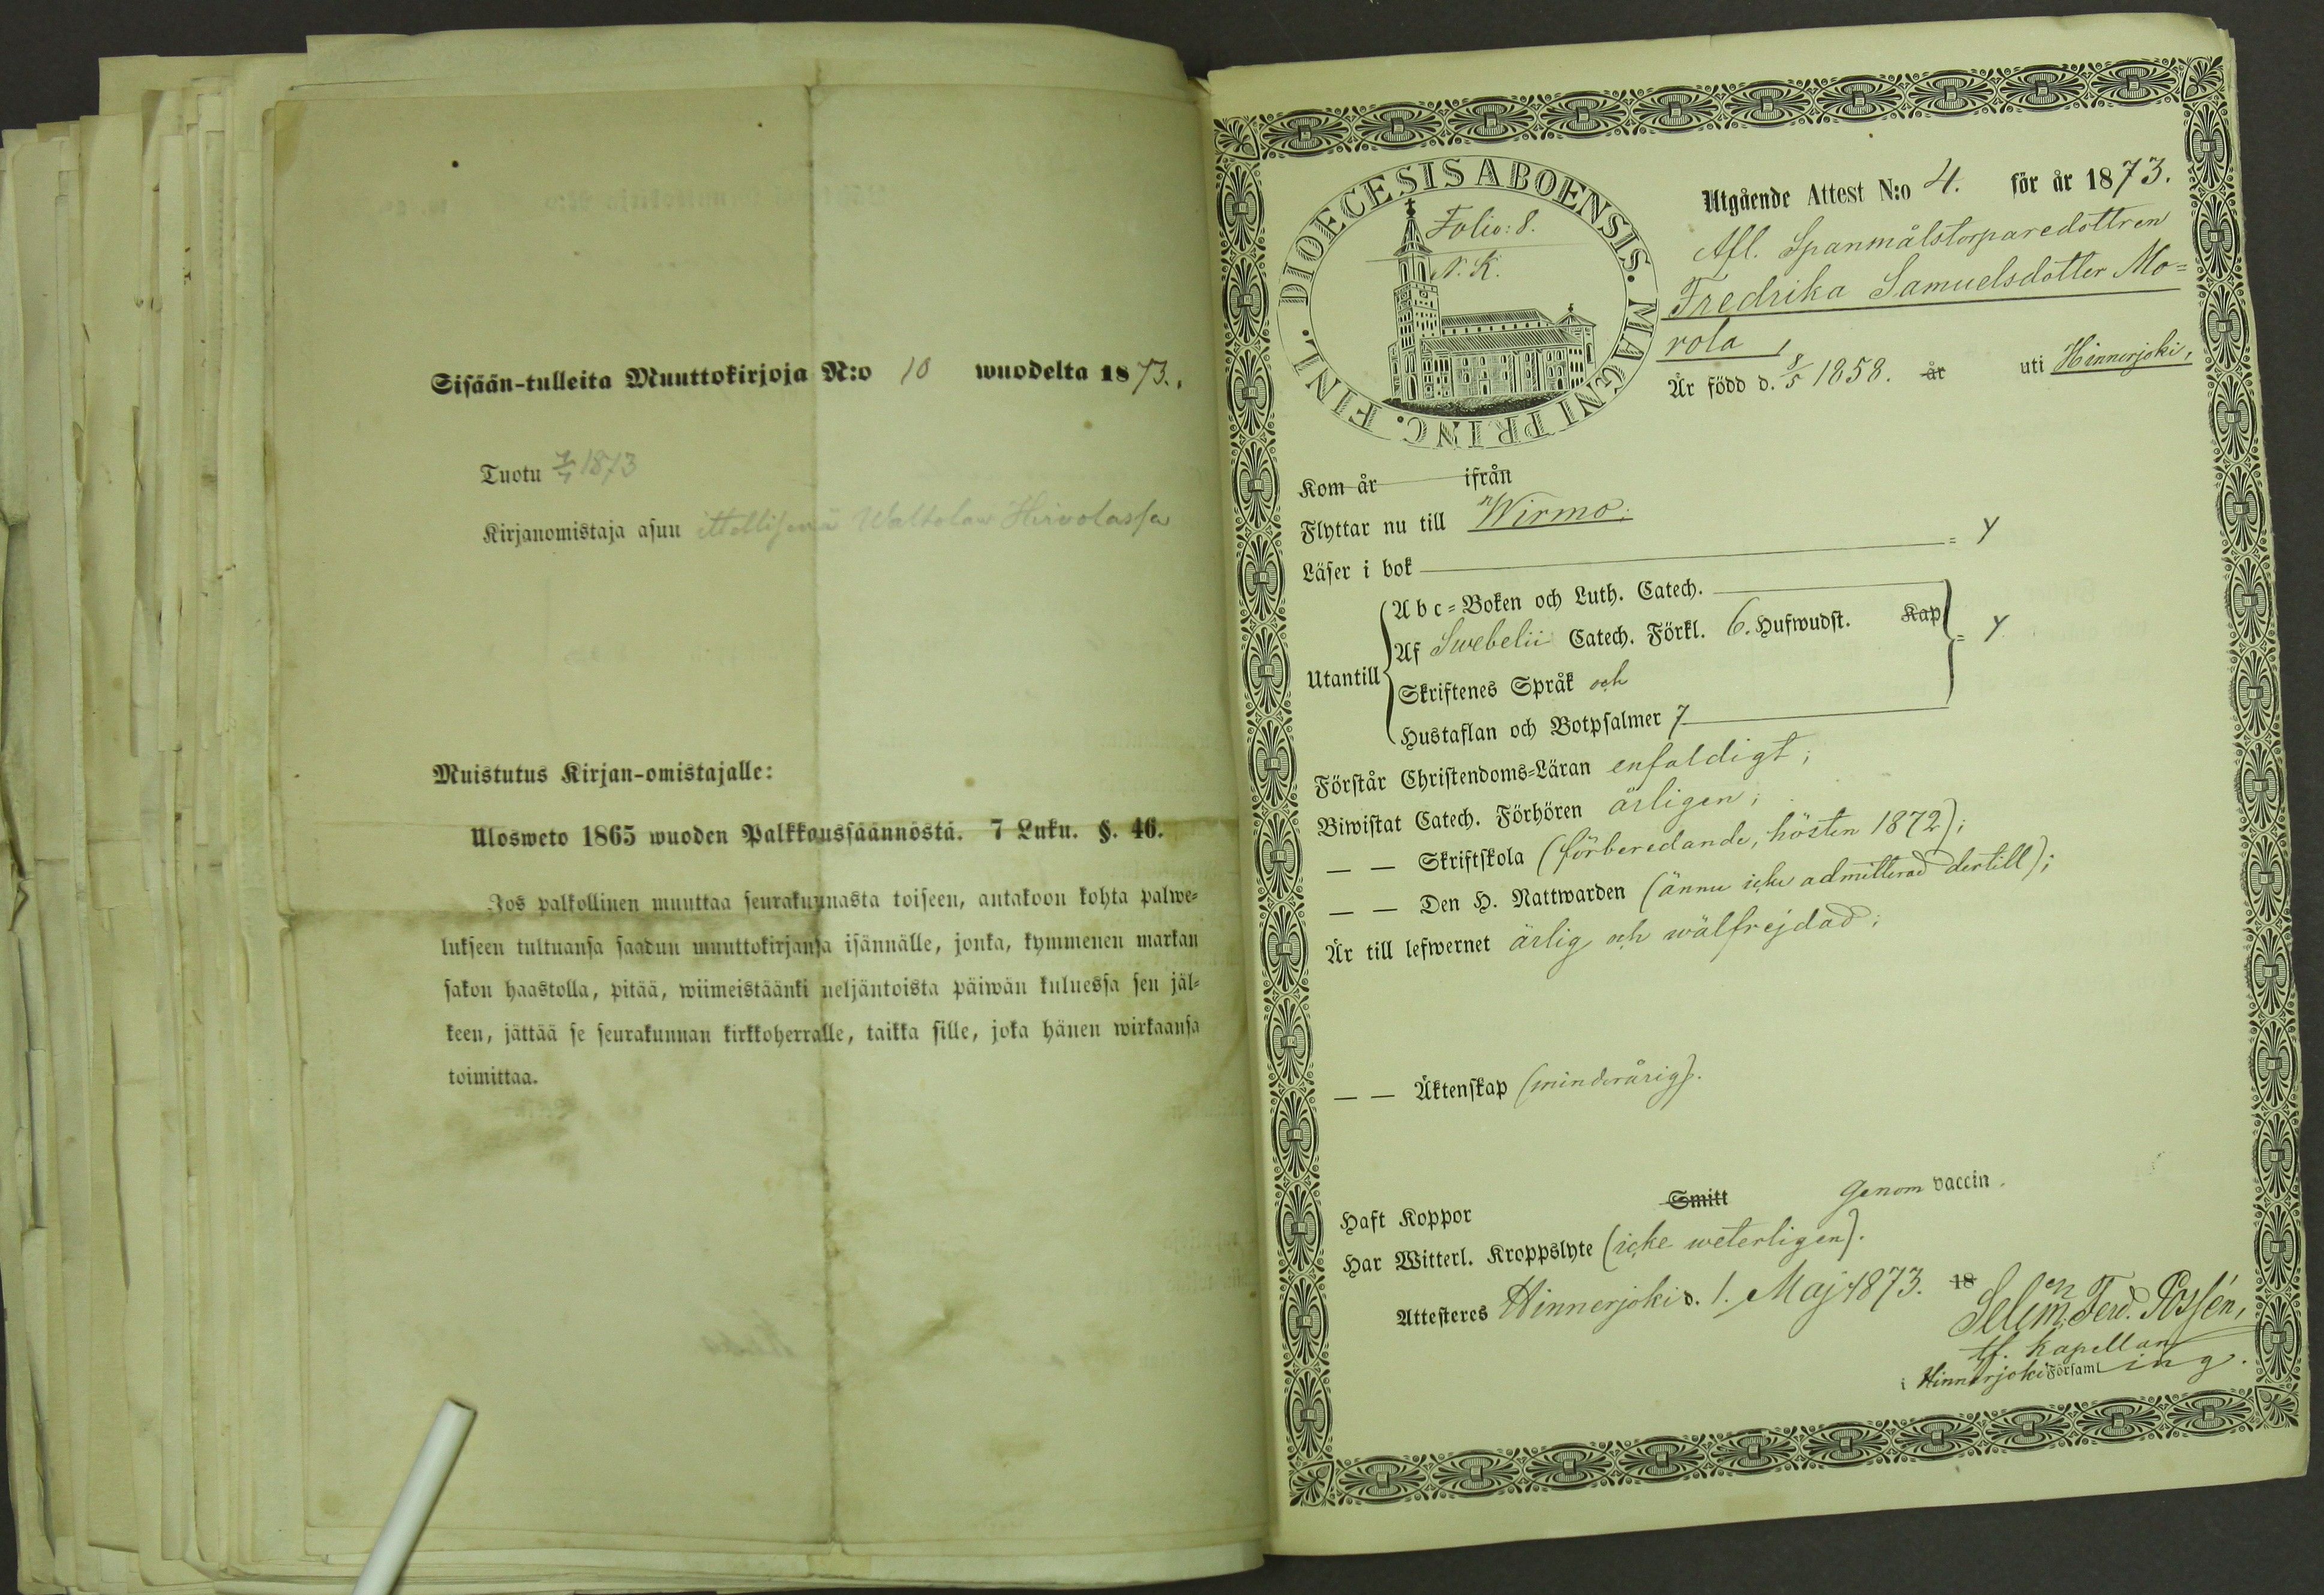 Sisään-tulleita Muuttokirjoja N:o 10 wuodelta 1873.
Tuotu 1873
Kirjanomistaja asuu ittellisenä Waltolan Hirvolassa
Muistutus Kirjan-omistajalle:
Ulosweto 1865 wuoden Palkkaussäännöstä. 7 Luku. §. 46.
Jos palkollinen muuttaa seurakunnasta toiseen, antakoon kohta palwe-
lukseen tultuansa saadun muuttokirjansa isännälle, jonka, kymmenen markan
sakon haastolla, pitää, wiimeistäänki neljäntoista päiwän kuluessa sen jäl-
keen, jättää se seurakunnan kirkkoherralle, taikka sille, joka hänen wirkaansa
toimittaa.
DIOECESIS ABOENSIS. MAGNI PRINC. FINL.
Folio: 8.
N. K.
Utgående Attest N:o 4. för år 1873.
Afl. Spanmålstorparedottren
Fredrika Samuelsdotter Mo=
rola,
Är född d. 8/5 1858. år uti Hinnerjoki,
Kom år ifrån
Flyttar nu till Wirmo;
Läser i bok = Y
Utantill
Abc-Boken och Luth. Catech.
Af Swebelii Catech. Förkl. 6. Hufwudst. Kap = Y
Skriftenes Språk och
Hustaflan och Botpsalmer 7
Förstår Christendoms-Läran enfaldigt;
Biwistat Catech. Förhören årligen;
— — Skriftskola (förberedande, hösten 1872);
— — Den H. Nattwarden (ännu icke admitterad dertill);
Är till lefwernet ärlig och wälfrejdad;
— — Äktenskap (minderårig).
Haft Koppor Smitt genom vaccin.
Har Witterl. Kroppslyte (icke weterligen).
Attesteres Hinnerjoki d. 1. Maj 1873. 18
Selim Ferd. Rossén,
tf. kapellan
i Hinnerjoki Församling.